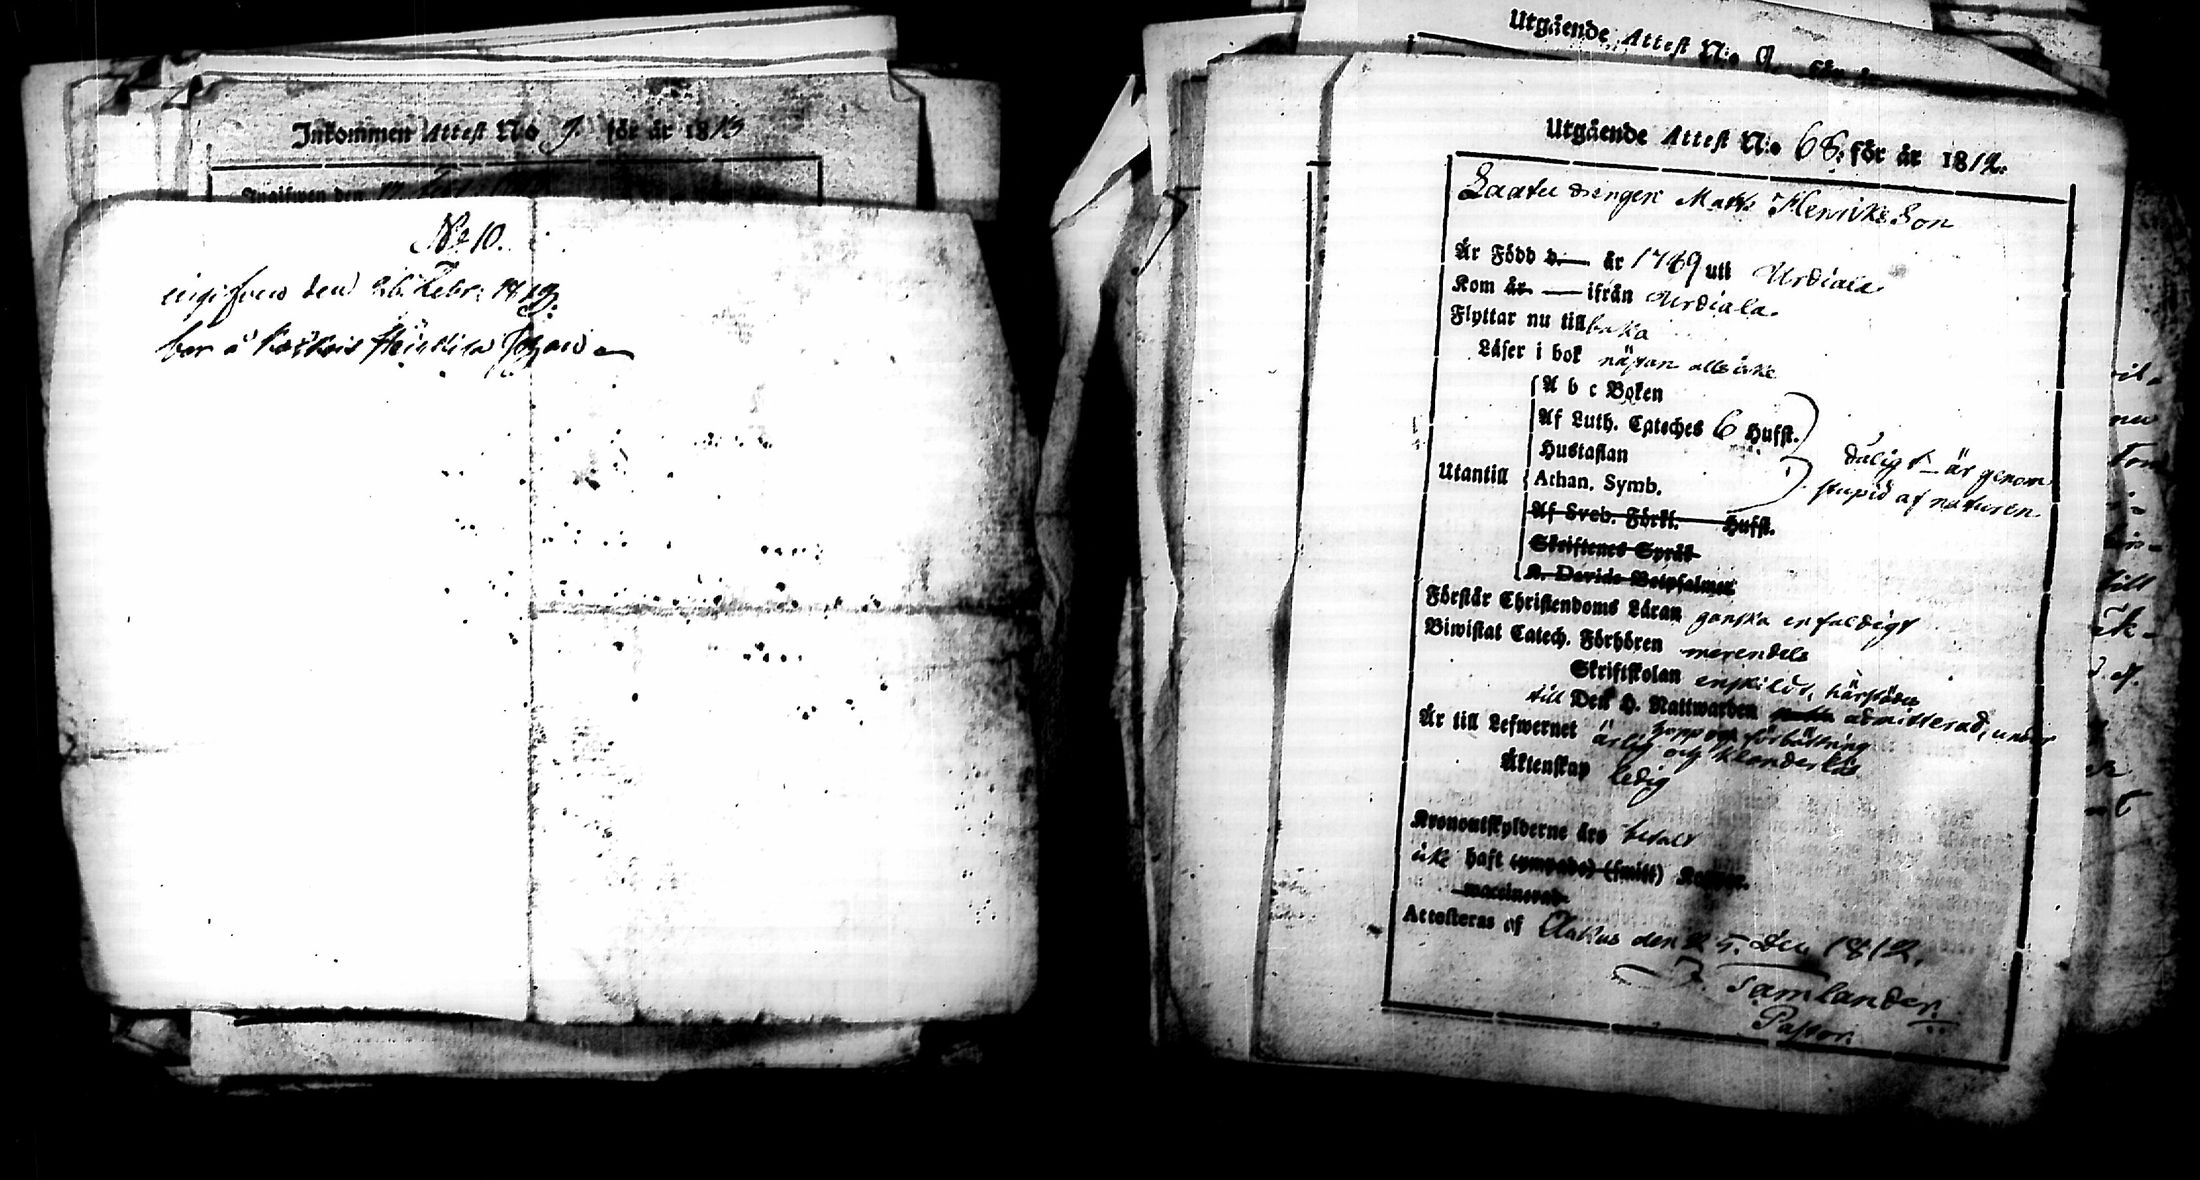 Inkommen Attest No 9. för år 1813
Ingifwen den 17
No 10.
ingifven den 26 Febr: 1813.
bor å
Utgående Attest N:o 9. för
Utgående Attest N:o 68. för år 1812.
drengen Matts Henriksson
Är Född d. — år 1789 uti Urdiala
Kom år — ifrån Urdiala.
Flyttar nu tillbaka
Läser i bok nästan alls icke
A b c Boken
Af Luth. Cateches 6 Hufst.
Hustaflan
Utantill
Athan. Symb.
dåligt – är genom
stupid af naturen
Af Sveb. Förkl. — Hufst.
Skriftenes Språk
K. Davids Botpsalmer
Förstår Christendoms Läran ganska enfaldigt
Biwistat Catech. Förhören merendels
Skriftskolan enskildt, härstädes
till Den H. Nattwarden admitterad, under
hopp om förbättring
Är till Lefwernet ärlig och klanderlös
Äktenskap ledig
Kronoutskylderne äro betalt
icke haft (ympade) (smitt) Koppor.
vaccinerad
Attesteras af Aakus den 25. Dec. 1812.
Tamlander.
Pastor.